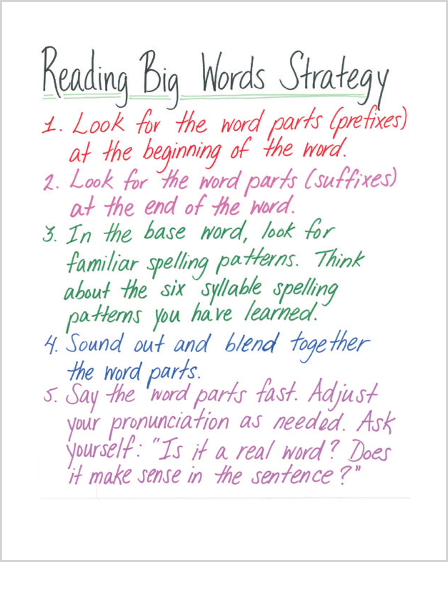 Reading Big Words Strategy
1. Look for the word parts (prefixes)
at the beginning of the word.
2. Look for the word parts (suffixes)
at the end of the word.
3. In the base word, look for
familiar spelling patterns. Think
about the six syllable spelling
patterns you have learned.
4. Sound out and blend together
the word parts.
5. Say the word parts fast. Adjust
your pronunciation as needed. Ask
yourself: "Is it a real word? Does
it make sense in the sentence?"